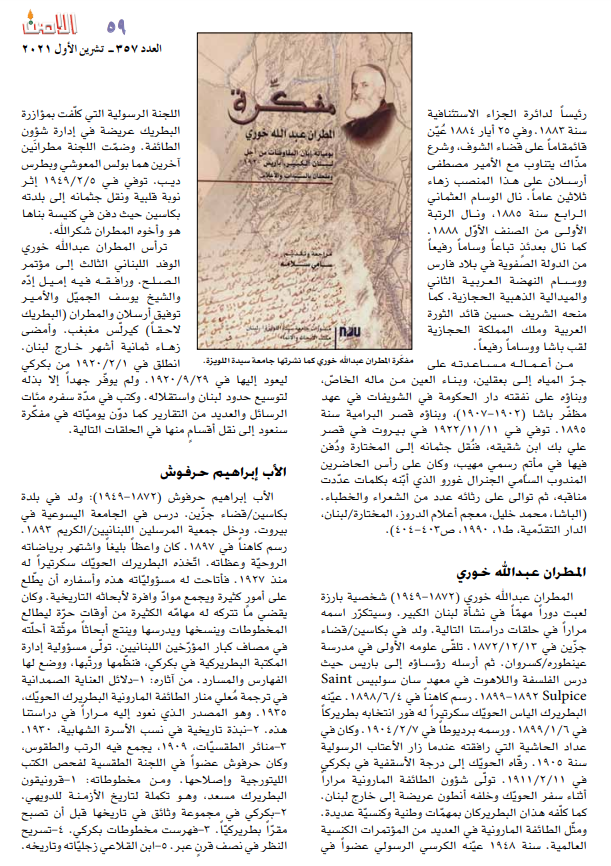 الباحث
٥٩
العدد ٣٥٧ـ تشرين الأول ٢٠٢١
رئيساً لدائرة الجزاء الاستئنافية
سنة ١٨٨٣. وفي ٢٥ أيار ١٨٨٤ عُيّن
قائمقاماً على قضاء الشوف، وشرع
مذّاك يتناوب مع الأمير مصطفى
أرسلان على هذا المنصب زهاء
ثلاثين عاماً. نال الوسام العثماني
الرابع سنة ١٨٨٥، ونال الرتبة
الأولى من الصنف الأوّل ١٨٨٨.
كما نال بعدئذٍ تباعاً وساماً رفيعاً
من الدولة الصفوية في بلاد فارس
ووسام النهضة العربية الثاني
والميدالية الذهبية الحجازية. كما
منحه الشريف حسين قائد الثورة
العربية وملك المملكة الحجازية
لقب باشا ووساماً رفيعاً.
مـن أعمـالـه مسـاعدتـه على
جـرّ المياه إلى بعقلين، وبناء العين من ماله الخاصّ،
وبناؤه على نفقته دار الحكومة في الشويفات في عهد
مظفّر باشا (١٩٠٢-١٩٠٧)، وبناؤه قصر البرامية سنة
١٨٩٥. توفي في ١٩٢٢/١١/١١ في بيروت في قصر
علي بك ابن شقيقه، فنُقل جثمانه إلى المختارة ودُفن
فيها في مأتم رسمي مهيب، وكان على رأس الحاضرين
المندوب السامي الجنرال غورو الذي أبّنه بكلمات عدّدت
مناقبه، ثم توالى على رثائه عدد من الشعراء والخطباء.
(الباشا، محمد خليل، معجم أعلام الدروز، المختارة/لبنان،
الدار التقدّمية، ط١، ١٩٩٠، ص٤٠٣-٤٠٤)
المطران عبدالله خوري
المطران عبدالله خوري (١٨٧٢-١٩٤٩) شخصية بارزة
لعبت دوراً مهمّاً في نشأة لبنان الكبير. وسيتكرّر اسمه
مراراً في حلقات دراستنا التالية. ولد في بكاسين/قضاء
جزّين في ١٨٧٢/١٢/١٣. تلقّى علومه الأولى في مدرسة
عينطوره/كسروان. ثم أرسله رؤساؤه إلى باريس حيث
درس الفلسفة واللاهوت في معهد سان سولبيس Saint
Sulpice ١٨٩٢-١٨٩٩. رسم كاهناً في ١٨٩٨/٦/٤. عيّنه
البطريرك الياس الحويّك سكرتيراً له فور انتخابه بطريركاً
في ١٨٩٩/١/٦. ورسمه برديوطاً في ١٩٠٤/٢/٧. وكان في
عداد الحاشية التي رافقته عندما زار الأعتاب الرسولية
سنة ١٩٠٥. رقّاه الحويّك إلى درجة الأسقفية في بكركي
في ١٩١١/٢/١١. تولّى شؤون الطائفة المارونية مراراً
أثناء سفر الحويّك وخلفه أنطون عريضة إلى خارج لبنان.
كما كلّفه هذان البطريركان بمهمّات وطنية وكنسيّة عديدة.
ومثّل الطائفة المارونية في العديد من المؤتمرات الكنسية
العالمية. سنة ١٩٤٨ عيّنه الكرسي الرسولي عضواً في
مفكرة
المطران عبد الله خوري
يومياته إبان المفاوضات من أجل
لبنان الكبير، باريس ١٩٢٠
مراجعة وتقديم
سامي سلامه
NDU
مفكّرة المطران عبدالله خوري كما نشرتها جامعة سيدة اللويزة.
اللجنة الرسولية التي كلّفت بمؤازرة
البطريك عريضة في إدارة شؤون
الطائفة. وضمّت اللجنة مطرانَين
آخرين هما بولس المعوشي وبطرس
ديب. توفي في ١٩٤٩/٢/٥ إثر
نوبة قلبية ونقل جثمانه إلى بلدته
بكاسين حيث دفن في كنيسة بناها
هو وأخوه المطران شكرالله.
ترأس المطران عبدالله خوري
الوفد اللبناني الثالث إلى مؤتمر
الصلح. ورافقـه فيـه إميـل إدّه
والشيخ يوسف الجميّل والأمير
توفيق أرسلان والمطران (البطريك
لاحقاً) كيرلّس مغبغب. وأمضى
زهاء ثمانية أشهر خارج لبنان.
انطلق في ١٩٢٠/٢/١ من بكركي
ليعود إليها في ١٩٢٠/٩/٢٩. ولم يوفّر جهداً إلا بذله
لتوسيع حدود لبنان واستقلاله. وكتب في مدّة سفره مئات
الرسائل والعديد من التقارير كما دوّن يوميّاته في مفكّرة
سنعود إلى نقل أقسامٍ منها في الحلقات التالية.
الأب إبراهيم حرفوش
الأب إبراهيم حرفوش (١٨٧٢-١٩٤٩): ولد في بلدة
بكاسين/قضاء جزّين. درس في الجامعة اليسوعية في
بيروت. ودخل جمعية المرسلين اللبنانيين/الكريم ١٨٩٣.
رسم كاهناً في ١٨٩٧. كان واعظاً بليغاً واشتهر برياضاته
الروحيّة وعظاته. اتّخذه البطريرك الحويّك سكرتيراً له
منذ ١٩٢٧. فأتاحت له مسؤوليّاته هذه وأسفاره أن يطّلع
على أمورٍ كثيرة ويجمع موادّ وافرة لأبحاثه التاريخية. وكان
يقضي ما تتركه له مهامّه الكثيرة من أوقات حرّة ليطالع
المخطوطات وينسخها ويدرسها وينتج أبحاثاً موثّقة أحلّته
في مصاف كبار المؤرّخين اللبنانيين. تولّى مسؤولية إدارة
المكتبة البطريركية في بكركي، فنظّمها ورتّبها، ووضع لها
الفهارس والمسارد. من آثاره: ١-دلائل العناية الصمدانية
في ترجمة مُعلي منار الطائفة المارونية البطريرك الحويّك،
١٩٣٥. وهو المصدر الذي نعود إليه مراراً في دراستنا
هذه. ٢-نبذة تاريخية في نسب الأسرة الشهابية، ١٩٣٠.
٣-منائر الطقسيّات، ١٩٠٩، يجمع فيه الرتب والطقوس،
وكان حرفوش عضواً في اللجنة الطقسية لفحص الكتب
الليتورجية وإصلاحها. ومن مخطوطاته: ١-قرونيقون
البطريرك مسعد، وهو تكملة لتاريخ الأزمنة للدويهي.
٢-بكركي في مجموعة وثائق في تاريخها قبل أن تصبح
مقرّاً بطريركيّاً. ٣-فهرست مخطوطات بكركي. ٤-تسريح
النظر في نصف قرنٍ عبر. ٥-ابن القلاعي زجليّاته وتاريخه،